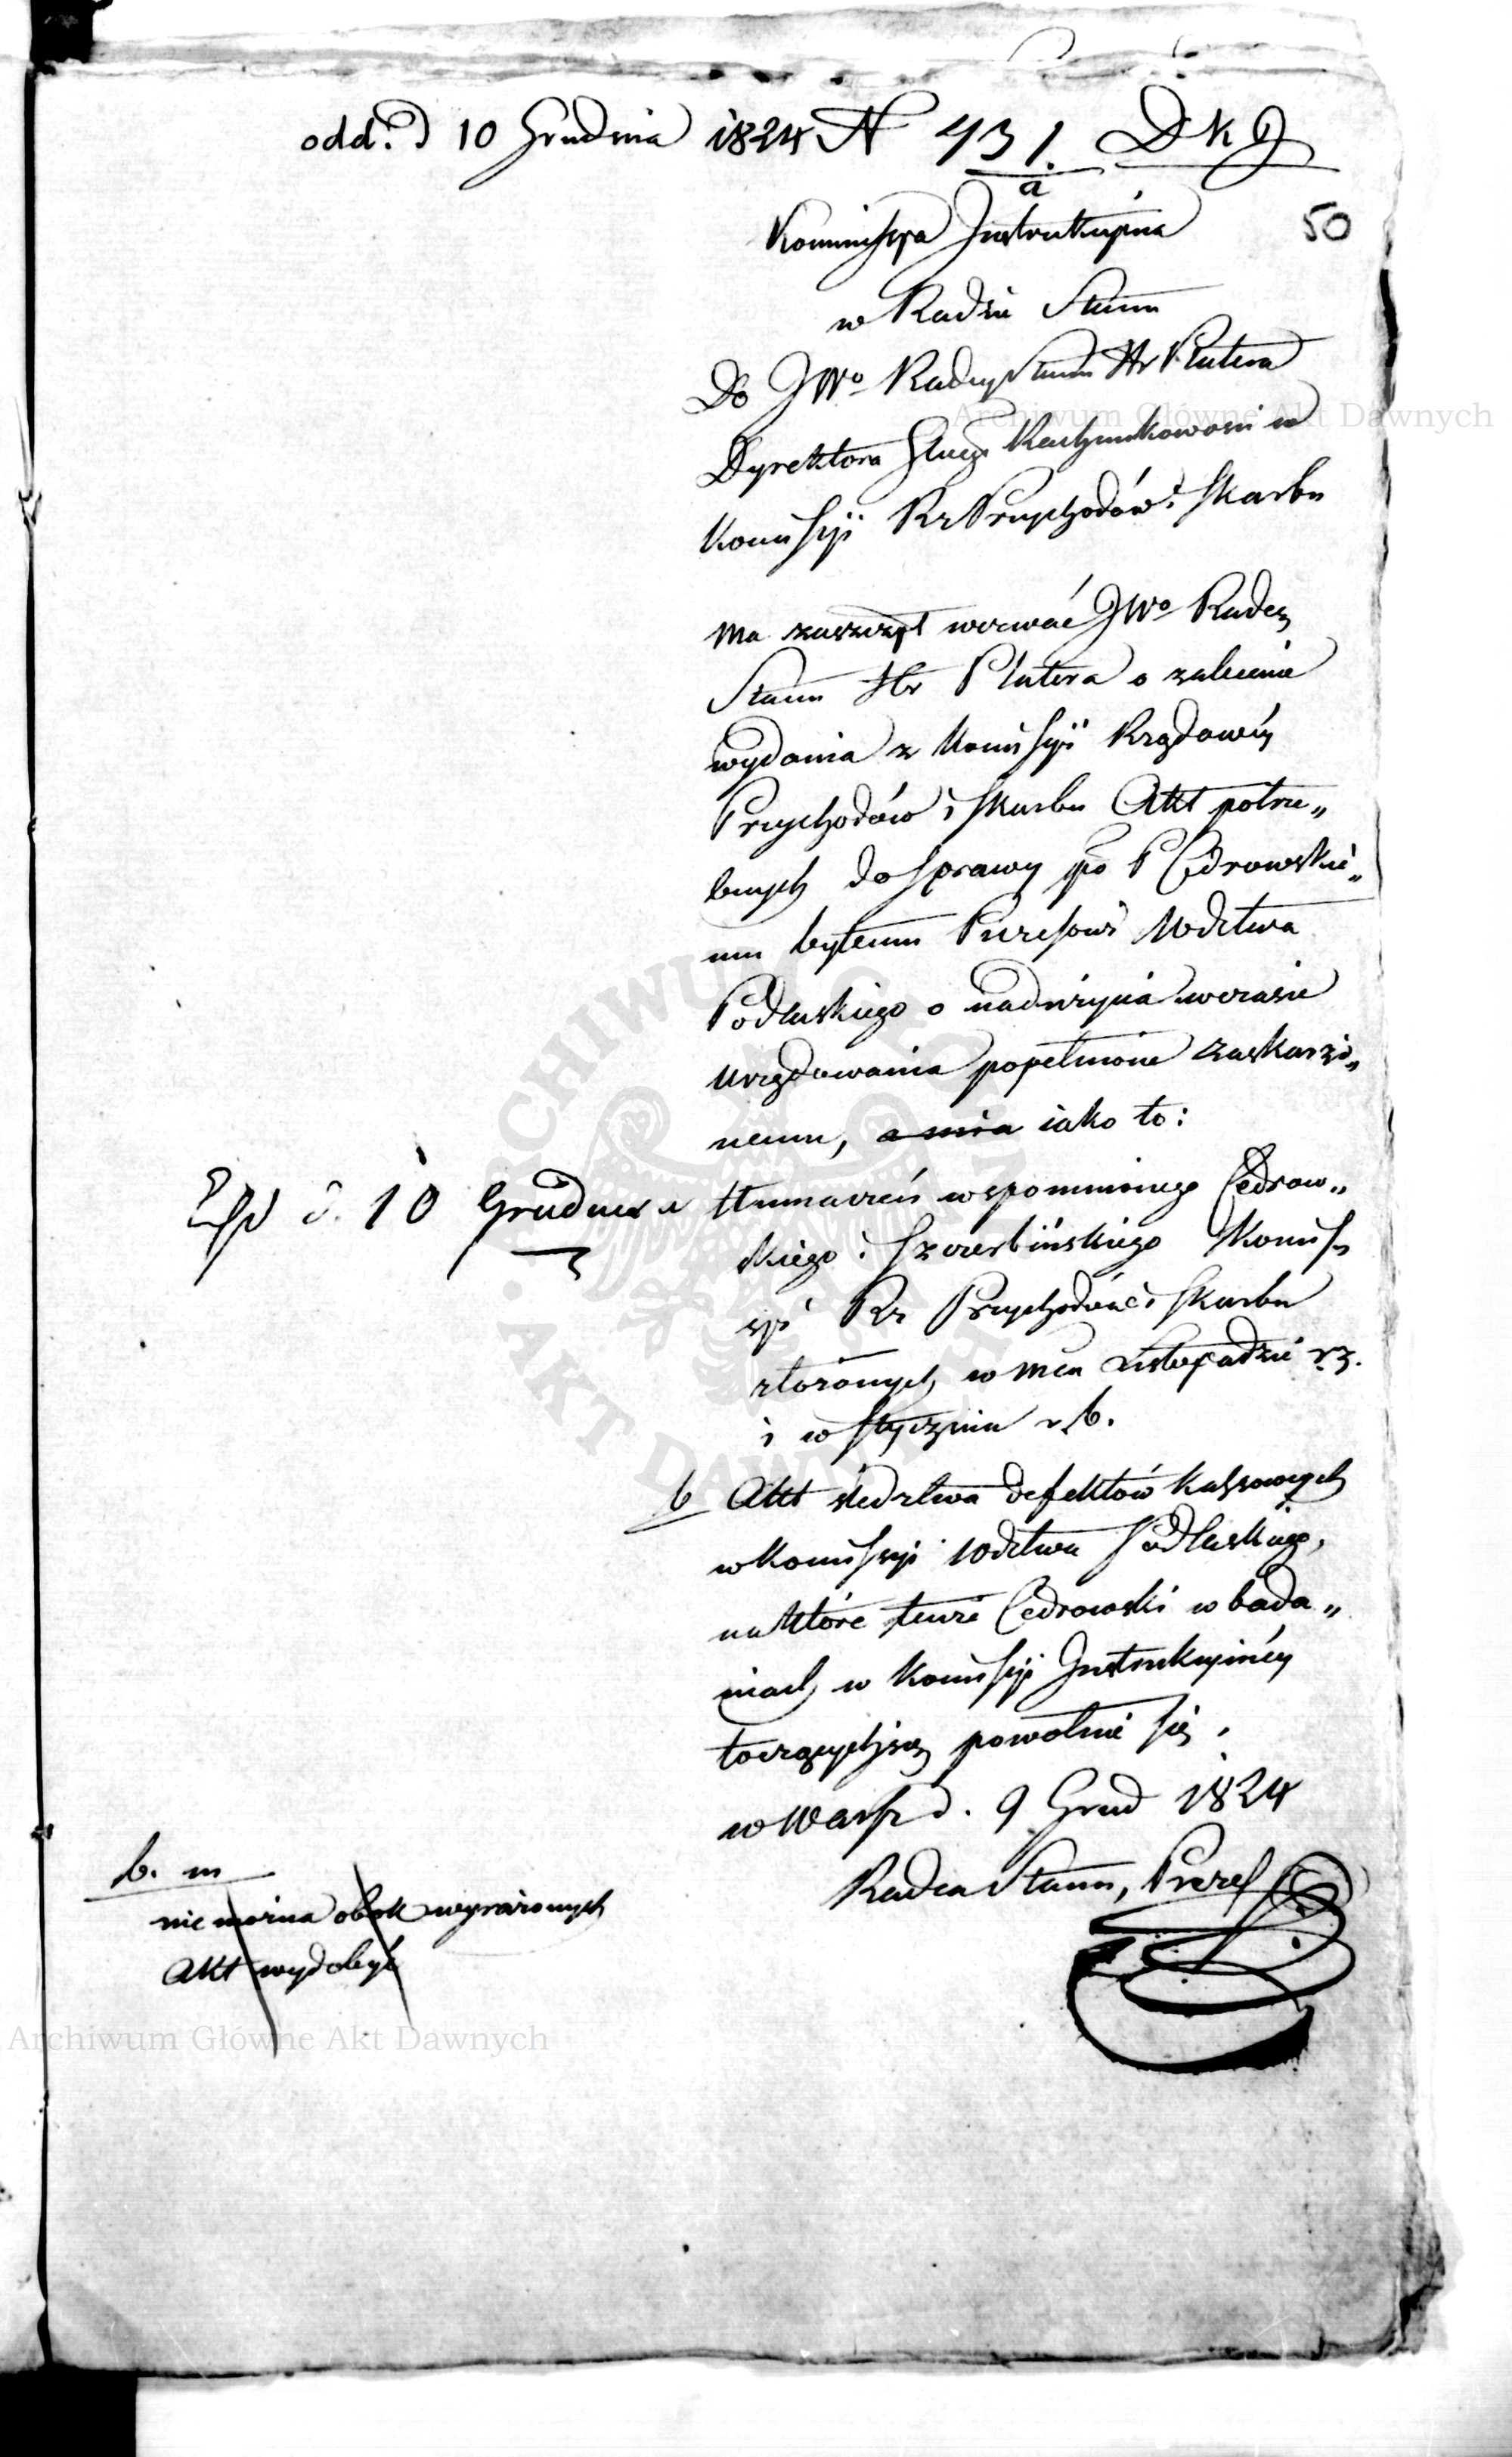 odd. d 10 Grudnia 1824 N 431. D K J
a
50
Kommissya Instrukcyina
w Radzie Stanu
Do JWo Radcy Stanu Hr Platera
Dyrektora Głneg Rachunkowosci w
Komissyi Rz Przychodów i Skarbu
Ma zaszczyt wezwać JWo Radcę
Stanu Hr Platera o zalecenie
wydania z Komissyi Rządowéy
Przychodów i Skarbu Akt potrze„
bnych do sprawy po P Cedrowskie„
mu byłemu Prezesowi Wodztwa
Podlaskiego o nadużycia w czasie
urzędowania popełnione zaskarżo„
nemu, iako to:
Exp d. 10 Grudnia
a tłumaczeń wspomnionego Cedrow„
skiego i Szczerbińskiego Komiss
syi Rz Przychodów i Skarbu
złożonych w mcu Listopadzie r. z.
i w Styczniu r. b.
b Akt śledztwa defektów kassowych
w Komissyi Wodztwa Podlaskiego,
na które tenże Cedrowski w bada„
niach w Komissyi Instrukcyinéy
toczących się powołuie się.
w Warsz d. 9 Grud 1824
Radca Stanu, Prezes
b. m
nie można obok wyrażonych
Akt wydobyć
Archiwum Główne Akt Dawnych
Archiwum Główne Akt Dawnych
ARCHIWUM GŁÓWNE AKT DAWNYCH